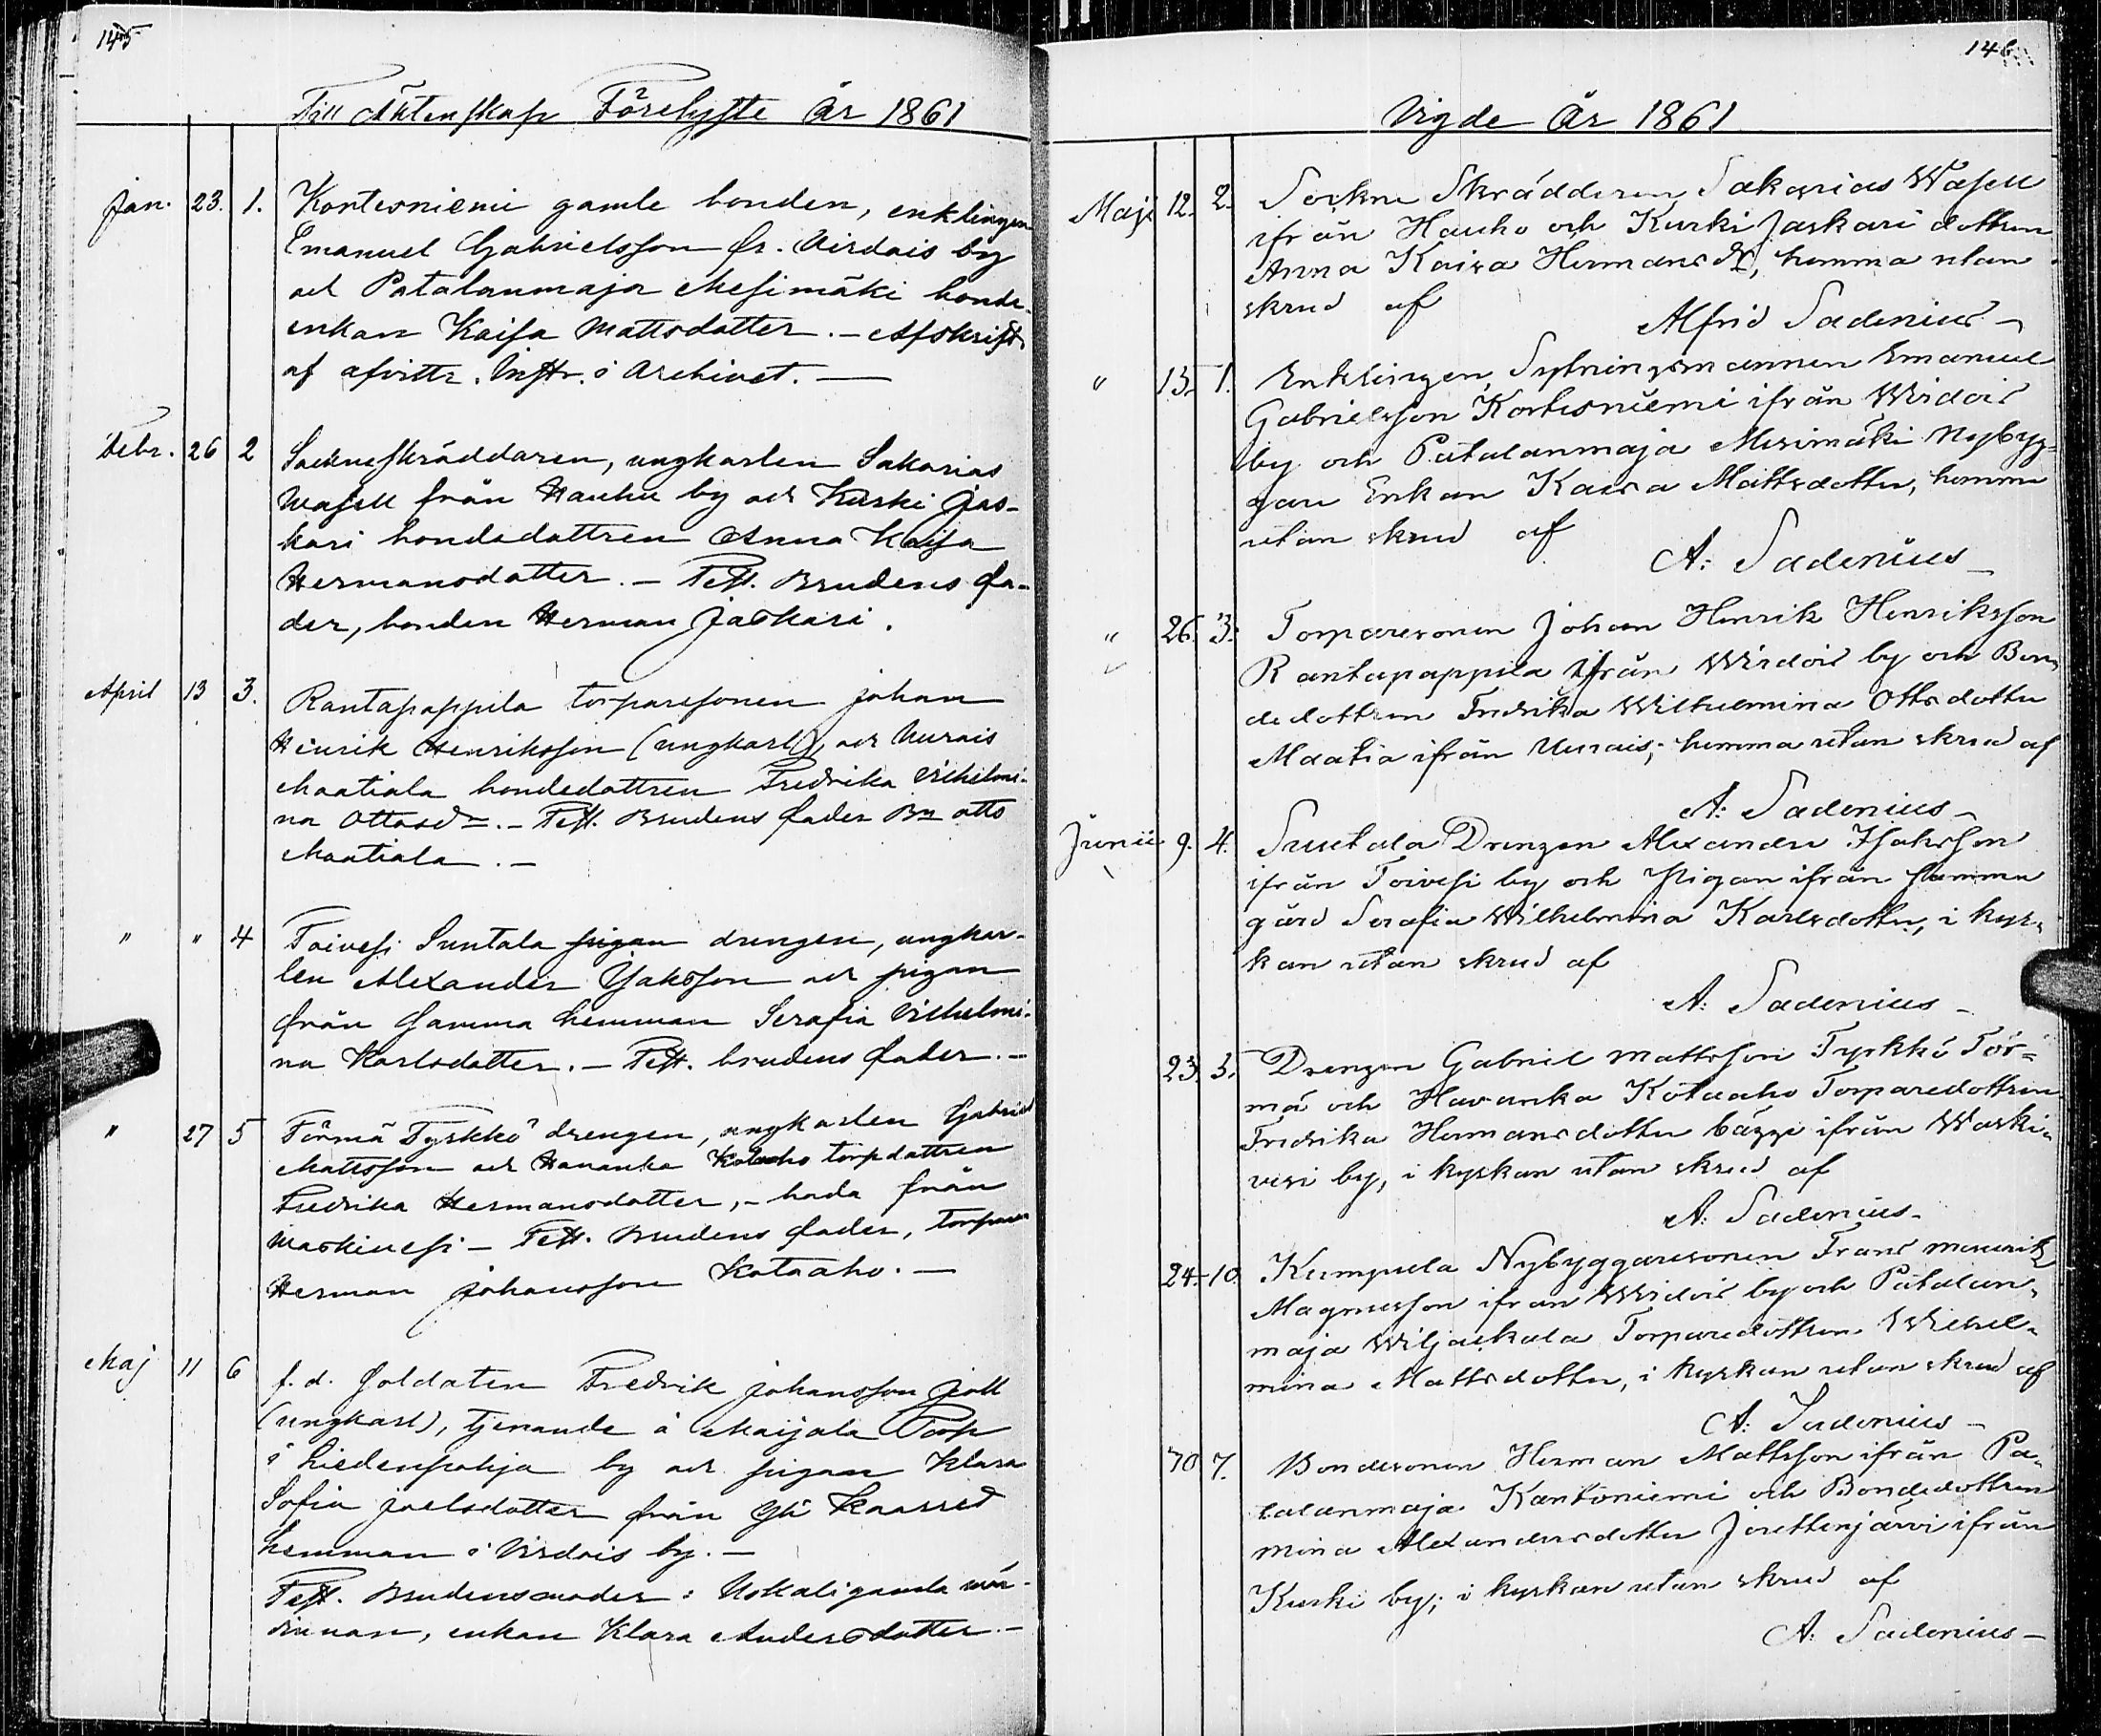 145
Till Äktenskap Förelyste År 1861
Jan. 23. 1. Kortesniemi gamle bonden, enklingen
Emanuel Gabrielsson fr. Virdois by
och Patalanmaja Mesimäki bonde-
enkan Kaisa Mattsdotter. – Afskrift
af afvittr. Instr. i Archivet. —
Febr. 26 2 Sockneskräddaren, ungkarlen Sakarias
Wasell från Hauhu by och Kurki Jas-
kari bondedottren Anna Kaisa
Hermansdotter. – Test. Brudens fa-
der, bonden Herman Jaskari.
April 13 3. Rantapappila torparesonen Johan
Henrik Henriksson (ungkarl) och Uurais
Maatiala bondedottren Fredrika Vilhelmi-
na Ottosdr. – Test. Brudens fader Bn Otto
Maatiala. –
" " 4 Toivesi Suntala pigan drengen, ungkar-
len Alexander Isaksson och pigan
från samma hemman Serafia Vilhelmi-
na Karlsdotter. – Test. brudens fader. –
" 27 5 Törmä Tyrkkö drengen, ungkarlen Gabriel
Mattsson och Havanka Kotaaho torpdottren
Fredrika Hermansdotter, – båda från
Waskivesi – Test. Brudens fader, torparen
Herman Johansson Kotaaho. —
Maj 11 6 f. d. Soldaten Fredrik Johansson Joll
(ungkarl), tjenande å Maijala Torp
i Liedenpohja by och pigan Klara
Sofia Joelsdotter från Yli Kaarred
hemman i Virdois by. –
Test. Brudens moder: Uskali gamla vär-
dinnan, enkan Klara Andersdotter. –
146
Vigde År 1861
Maji 12. 2. Sockne Skräddaren Sakarias Wasell
ifrån Hauho och Kurki Jaskari dottren
Anna Kaisa Hermansdr, hemma utan
skrud af
Alfrid Sadenius –
" 13. 1. Enklingen, Sytningsmannen Emanuel
Gabrielsson Kortesniemi ifrån Wirdois
by och Patalanmaja Mesimäki Nybyg-
gare Enkan Kaisa Mattsdotter, hemma
utan skrud af
A: Sadenius –
" 26. 3. Torparesonen Johan Henrik Henriksson
Rantapappila ifrån Wirdois by och Bon-
dedottren Fredrika Wilhelmina Ottsdotter
Maatia ifrån Uurais; hemma utan skrud af
A: Sadenius –
Junii 9. 4. Suutala Drengen Alexander Isaksson
ifrån Toivesi by och Pigan ifrån samma
gård Serafia Wilhelmina Karlsdotter, i kyr-
kan utan skrud af
A: Sadenius –
23. 5. Drengen Gabriel Mattsson Tyrkkö Tör-
mä och Havanka Kotaaho Torparedottren
Fredrika Hermansdotter bägge ifrån Waski-
vesi by, i kyrkan utan skrud af
A: Sadenius –
24. 10. Kumpula Nybyggaresonen Frans
Magnusson ifrån Wirdois by och Patalan-
maja Wiljaskala Torparedottren Wilhel-
mina Mattsdotter, i kyrkan utan skrud af
A: Sadenius –
30 7. Bondesonen Herman Mattsson ifrån Pa-
talanmaja Kantoniemi och Bondedottren
Mina Alexandersdotter Jorettenjärvi ifrån
Kurki by; i kyrkan utan skrud af
A: Sadenius –